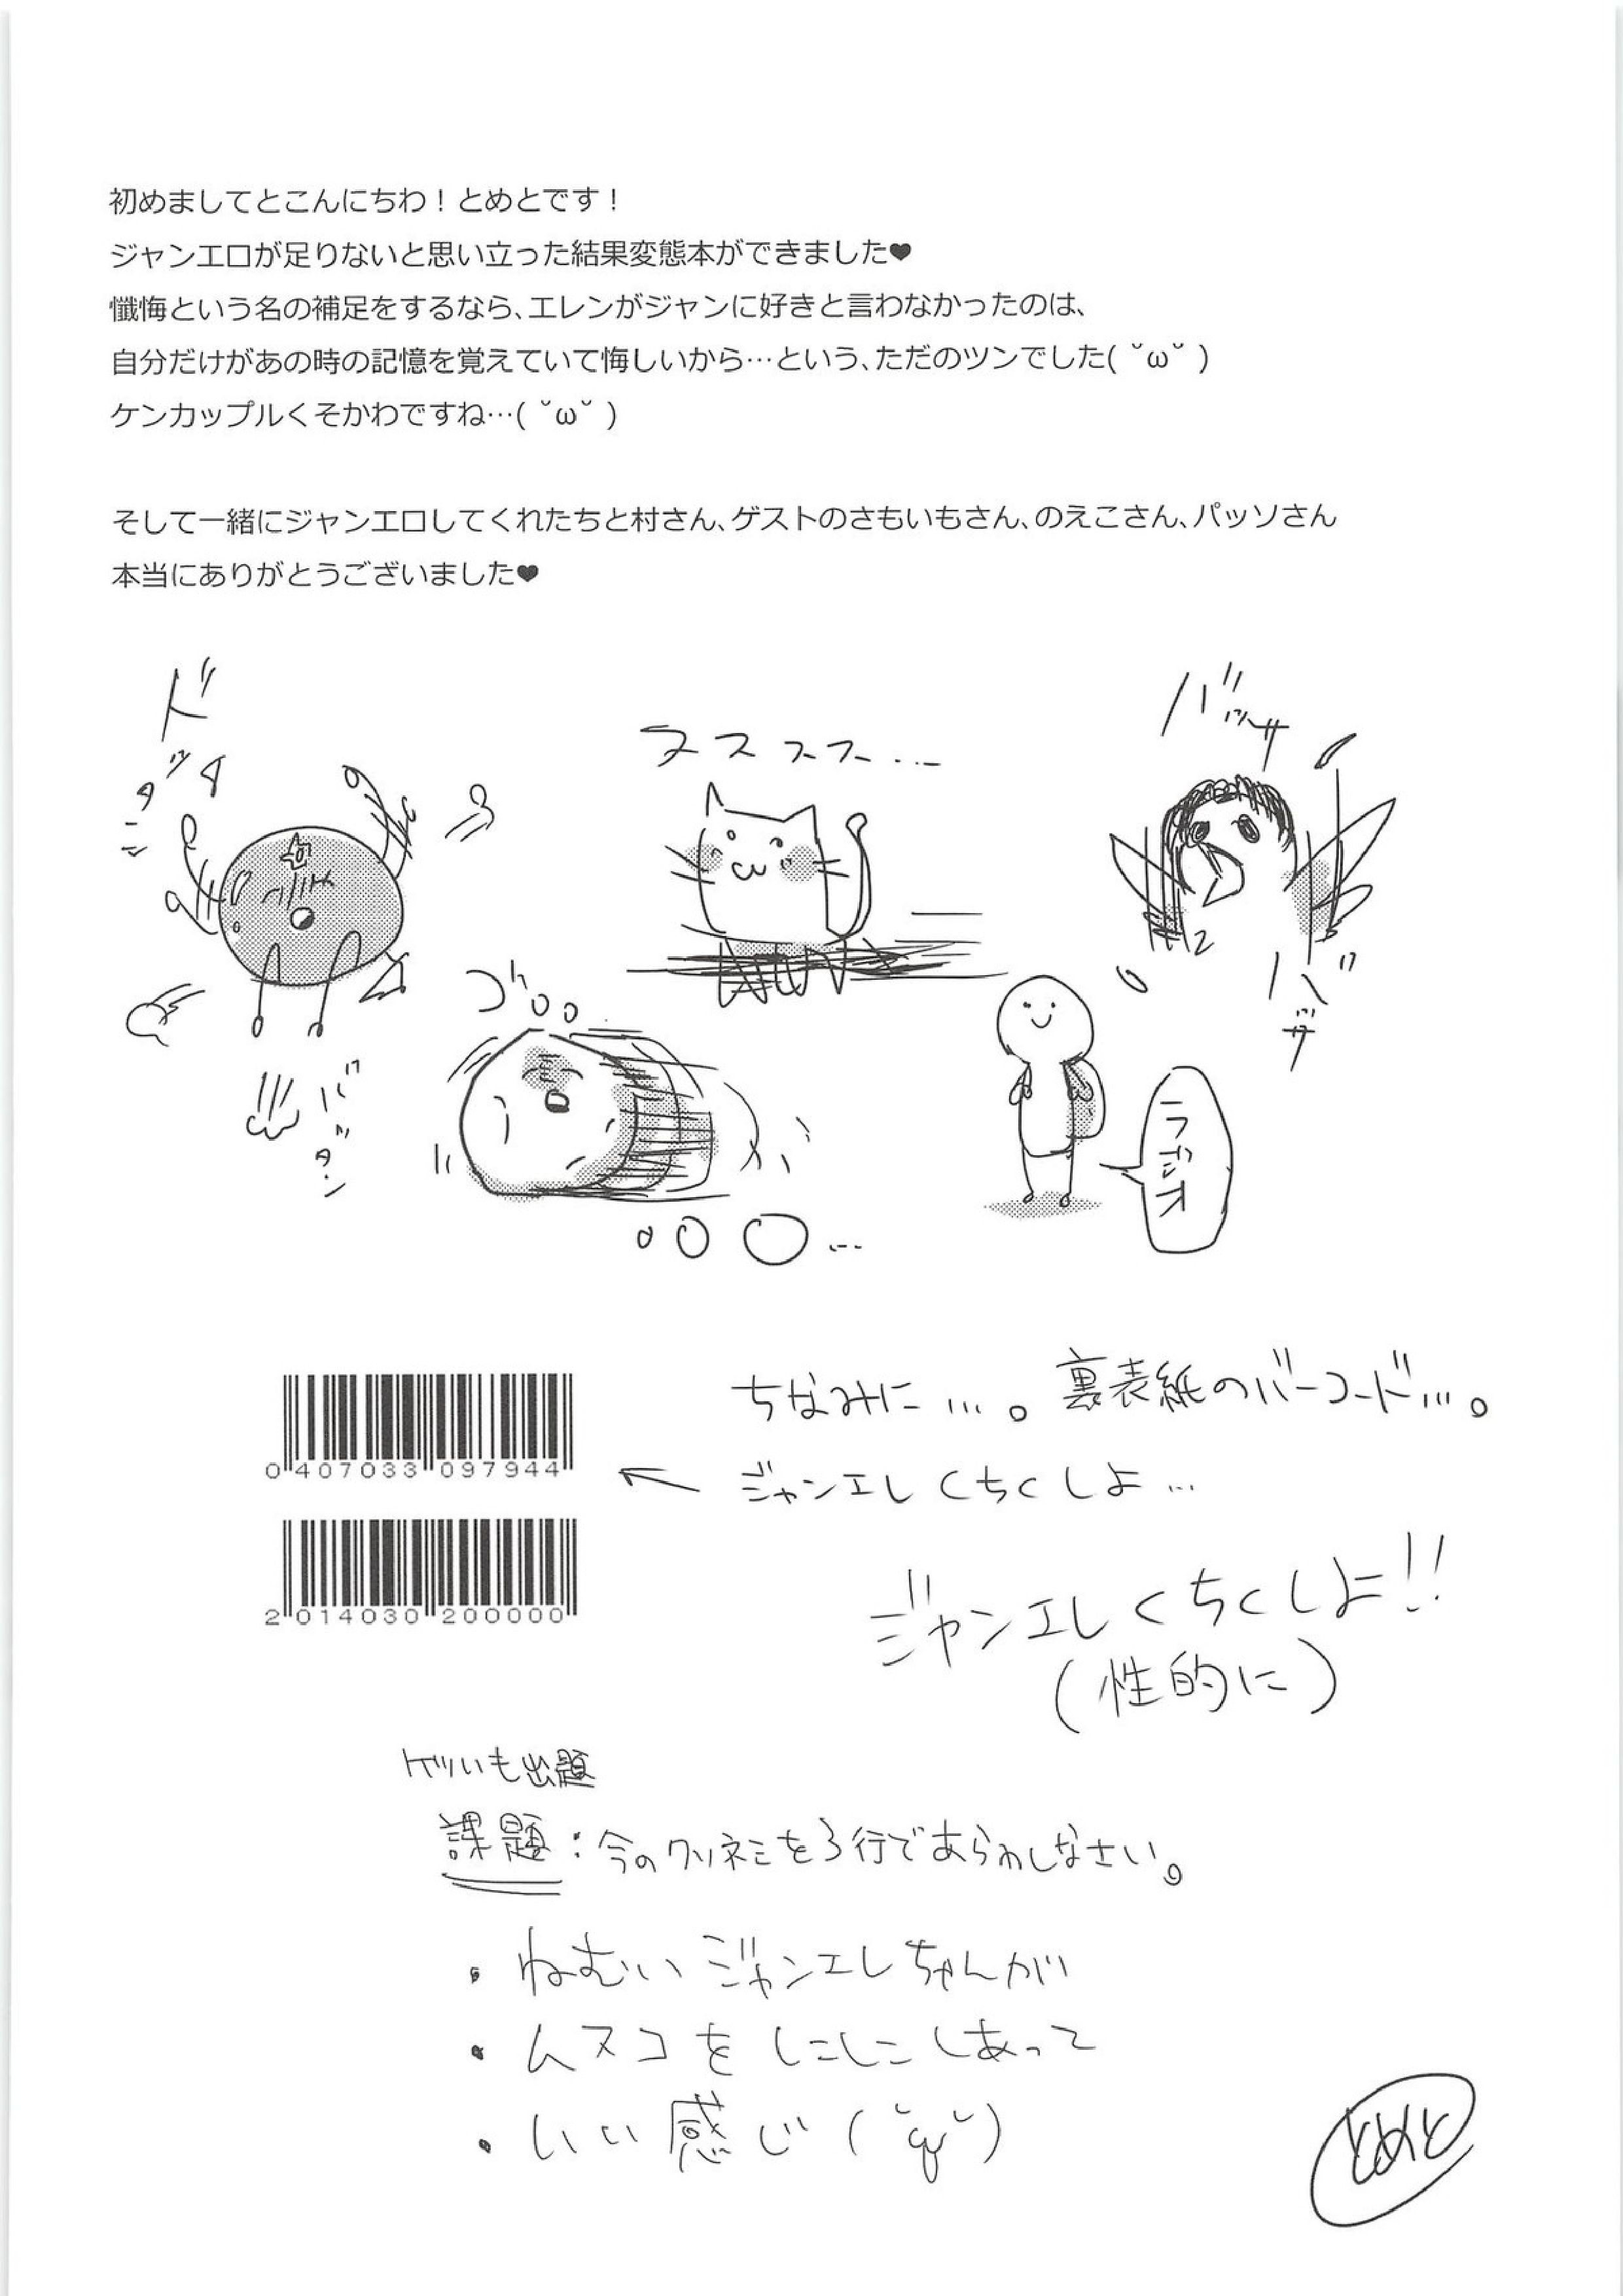 初めましてとこんにちわ！とめとです！
ジャンエロが足りないと思い立った結果変態本ができました♥
懺悔という名の補足をするなら、エレンがジャンに好きと言わなかったのは、
自分だけがあの時の記憶を覚えていて悔しいから…という、ただのツンでした( ˘ω˘ )
ケンカップルくそかわですね…( ˘ω˘ )
そして一緒にジャンエロしてくれたたちと村さん、ゲストのさもいもさん、のえこさん、パッソさん
本当にありがとうございました♥
ドッタ
タン
ヌススス…
バッサ
バサ
ゴロロ
バッタン
ラジオ
ちなみに…。裏表紙のバーコード…。
0 407033 097944
← ジャンエレくちくしよ…
2 014030 200000
ジャンエレくちくしよ!!
(性的に)
いも出題
課題：今のクソネミを3行であらわしなさい。
・ねむいジャンエレちゃんが
・ムスコをしこしこしあって
・いい感じ(˘q˘)
とめと